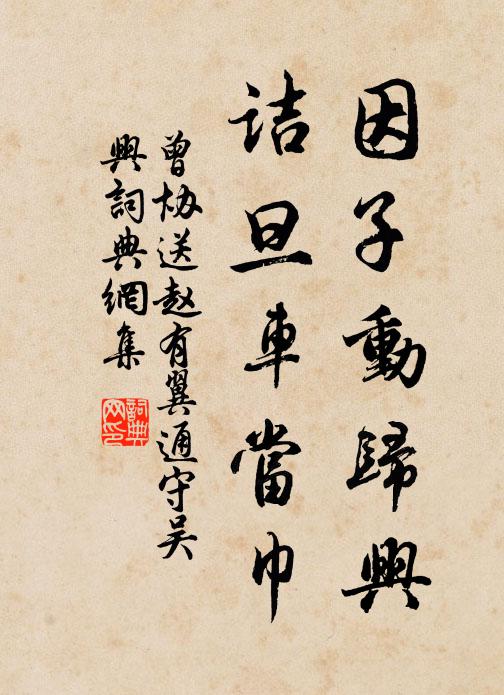 因子動歸興
詰旦車當巾
曾协送赵有翼通守吴
興詞典網集
詞典
网印